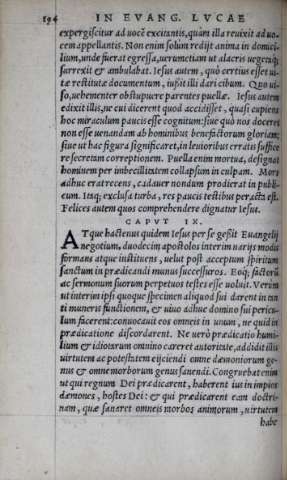 194 IN EVANG. LVCAE
expergiscitur ad uocē excitantis, quàm illa reuixit ad uo-
cem appellantis. Non enim solùm redijt anima in domici-
lium, unde fuerat egressa, uerumetiam ut alacris uegetaq;
surrexit & ambulabat. Iesus autem, quò certius esset ui-
tæ restitutæ documentum, iußit illi dari cibum. Quo ui-
so, uehementer obstupuere parentes puellæ. Iesus autem
edixit illis, ne cui dicerent quod accidisset, quasi cupiens
hoc miraculum paucis esse cognitum: siue quò nos doceret
non esse uenandam ab hominibus benefactorum gloriam:
siue ut hac figura significaret, in leuioribus erratis suffice
re secretam correptionem. Puella enim mortua, designat
hominem per imbecillitatem collapsum in culpam. Mors
adhuc erat recens, cadauer nondum prodierat in publi-
cum. Itaq; exclusa turba, res paucis testibus peracta est.
Felices autem quos comprehendere dignatur Iesus.
CAPVT IX.
ATque hactenus quidem Iesus per se gesit Euangelij
negotium, duodecim apostolos interim uarijs modis
formans atque instituens, uelut post acceptum spiritum
sanctum in prædicandi munus successuros. Eoq; factorū
ac sermonum suorum perpetuos testes esse uoluit. Verùm
ut interim ipsi quoque specimen aliquod sui darent in tan
ti muneris functionem, & uiuo adhuc domino sui pericu-
lum facerent: conuocauit eos omneis in unum, ne quid in
prædicatione discordarent. Ne uerò prædicatio humi-
lium & idiotarum omnino careret autoritate, addidit illis
uirtutem ac potestatem eijciendi omne dæmoniorum ge-
nus & omne morborum genus sanandi. Congruebat enim
ut qui regnum Dei prædicarent, haberent ius in impios
dæmones, hostes Dei: & qui prædicarent eam doctri-
nam, quæ sanaret omneis morbos animorum, uirtutem
habe